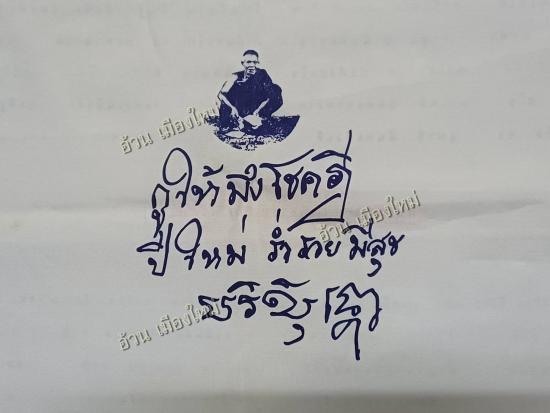 อ้วน เมืองใหม่
กูให้มึงโชคดี
อ้วน เมืองใหม่
ปีใหม่ ร่ำรวย มีสุข
อ้วน เมืองใหม่
ปริสุทฺโธ